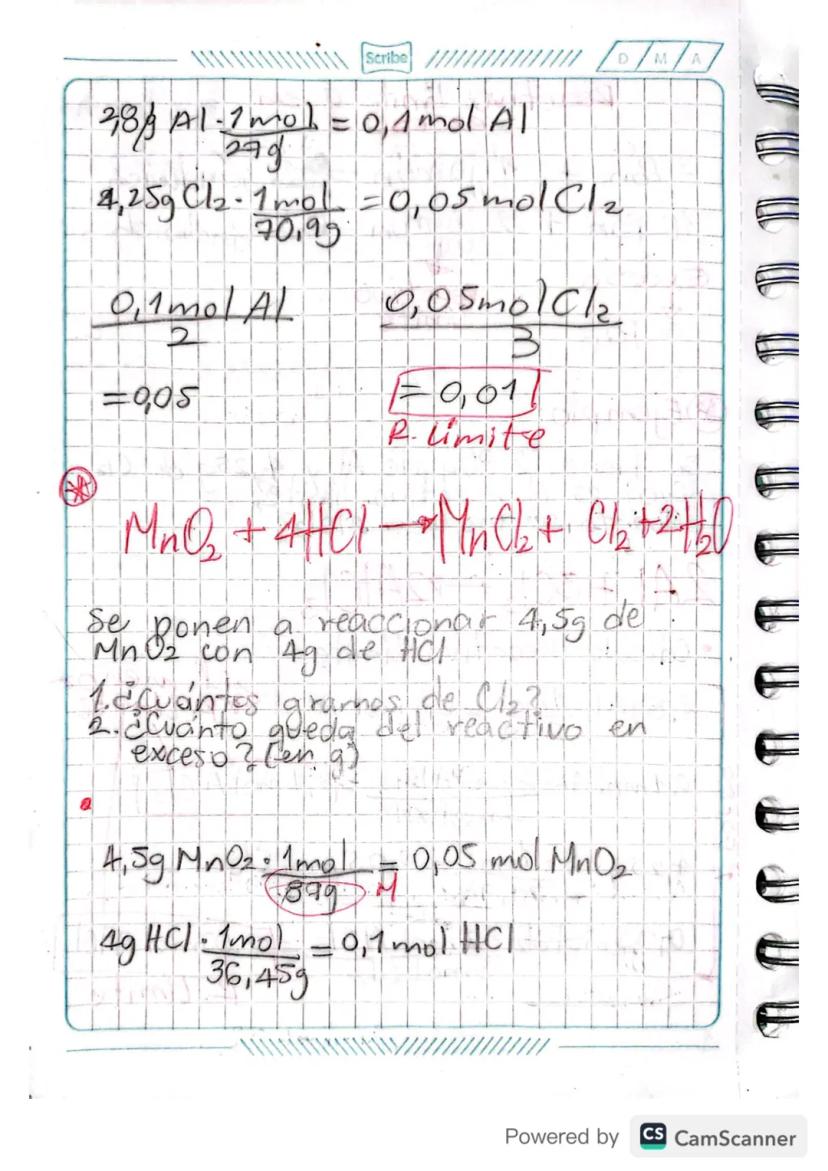 Scribe
D / M / A
2,8g Al · 1mol = 0,1mol Al
27g
4,25g Cl₂ · 1mol = 0,05molCl₂
70,9g
0,1mol Al 0,05molCl₂
2 3
=0,05 = 0,01
R. Límite
MnO₂ + 4HCl → MnCl₂ + Cl₂ + 2H₂O
Se ponen a reaccionar 4,5g de
MnO₂ con 4g de HCl
1. ¿Cuántos gramos de Cl₂?
2. ¿Cuánto queda del reactivo en
exceso? (en g)
4,5g MnO₂ · 1mol = 0,05 mol MnO₂
89g M
4g HCl · 1mol = 0,1mol HCl
36,45g
Powered by CS CamScanner